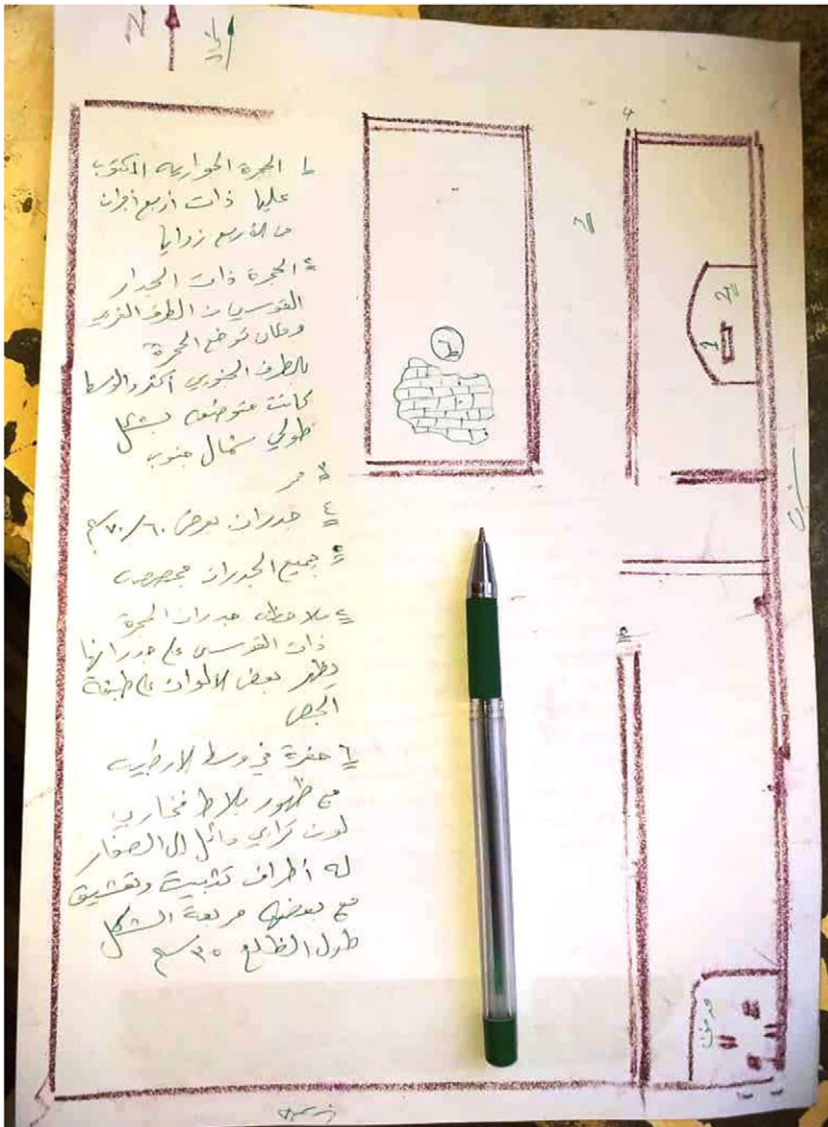 N
١ الحجرة الحوارية المكتوب
عليها ذات أربع أجران
من الأربع زوايا
٢ الحجرة ذات الجدار
القوسي من الطرف الغربي
وكان توضع الحجرة
بالطرف الجنوبي أكثر والوسط
كانت متوضعه بشكل
طولي شمال جنوب
٣ ممر
٤ جدران بعرض ٦٠/٧٠ سم
٥ جميع الجدران مجصصة
ملاحظه جدران الحجرة
ذات القوس على جدرانها
يظهر بعض الألوان على طبقة
الجص
٦ حفرة في وسط الأرضية
مع ظهور بلاط فخاري
لون كرابي مائل إلى الصفار
له أطراف تثبيت وتعشيق
مع بعضها مربعة الشكل
طول الضلع ٣٥ سم